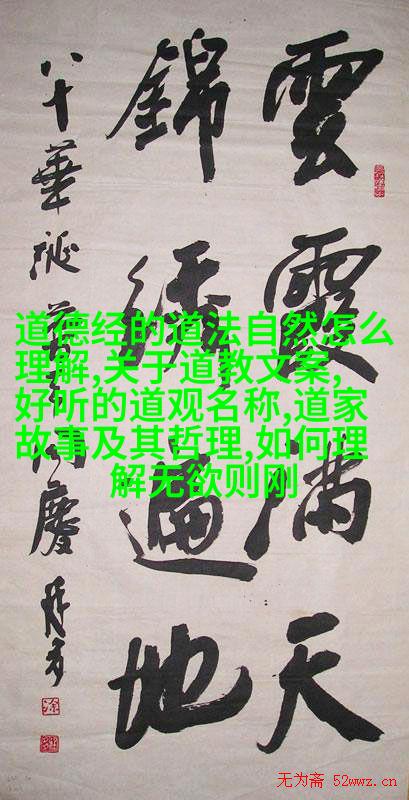 雲霞满天
錦绣遍地
八十華诞
慶
道德经的道法自然怎么
理解,关于道教文案,
好听的道观名称,道家
故事及其哲理,如何理
解无欲则刚
无为斋 52wwz.cn